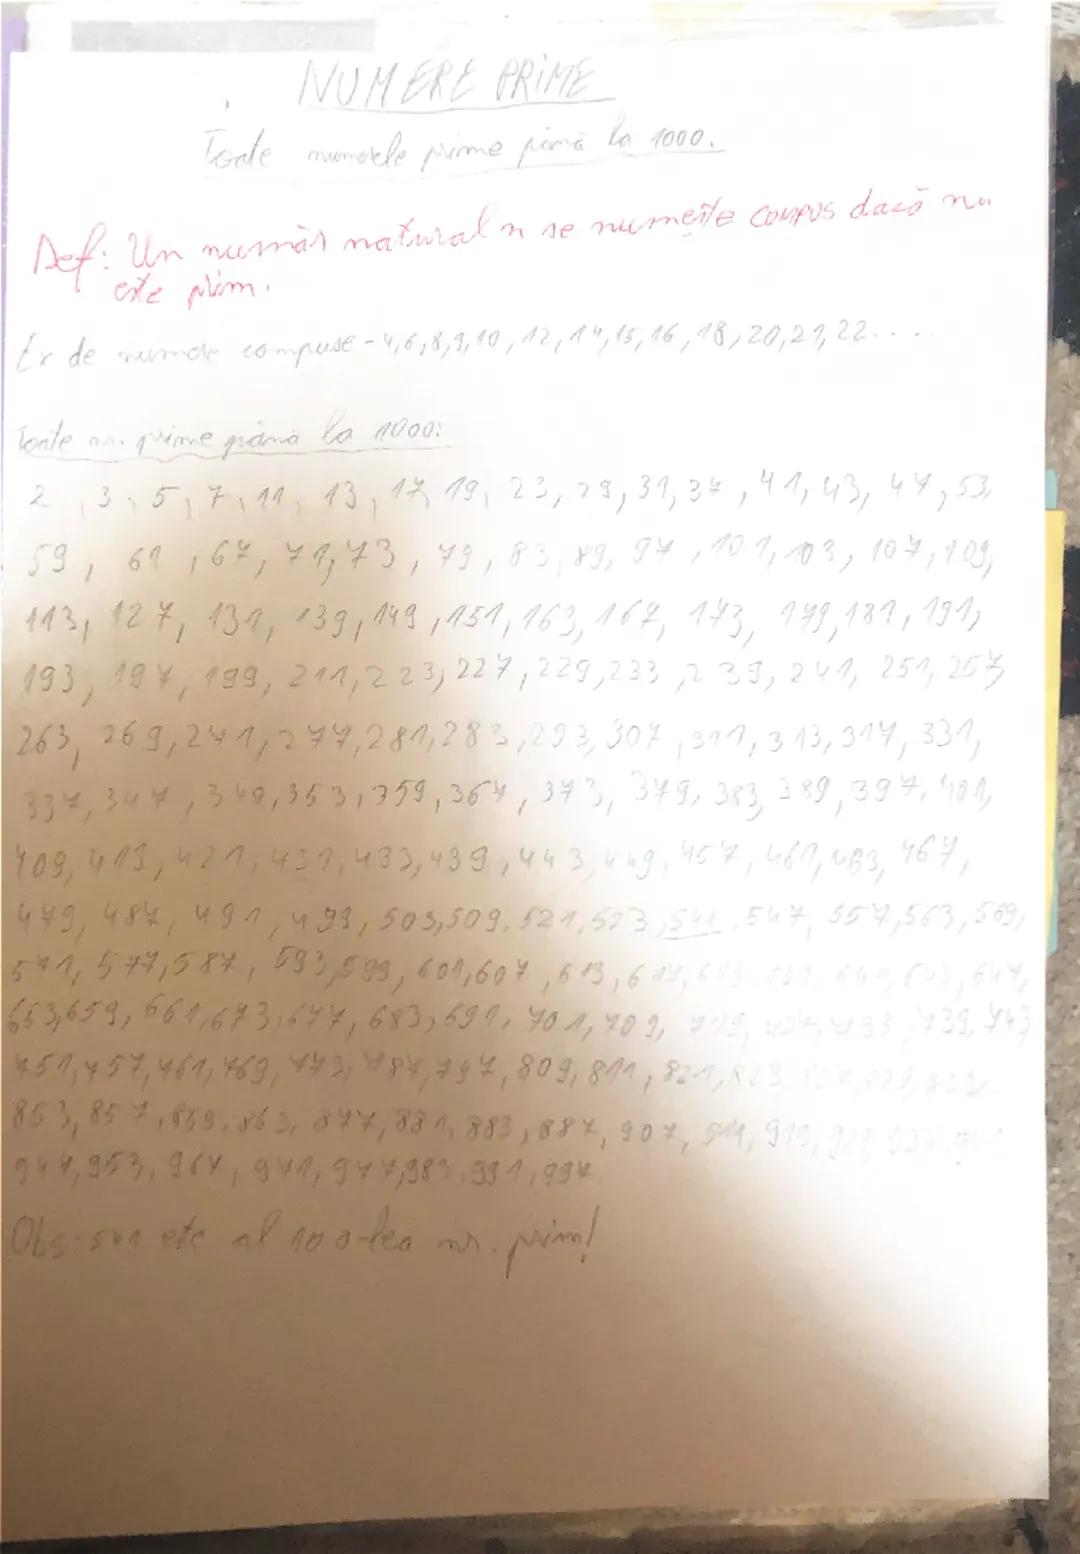 NUMERE PRIME
Toate numerele prime până la 1000.
Def: Un număr natural n se numește compus dacă nu
este prim.
Ex de numere compuse - 4,6,8,9,10,12,14,15,16,18,20,21,22.....
Toate nr. prime până la 1000:
2, 3, 5, 7, 11, 13, 17, 19, 23, 29, 31, 37, 41, 43, 47, 53,
59, 61, 67, 71, 73, 79, 83, 89, 97, 101, 103, 107, 109,
113, 127, 131, 139, 149, 151, 163, 167, 173, 179, 181, 191,
193, 197, 199, 211, 223, 227, 229, 233, 239, 241, 251, 257,
263, 269, 271, 277, 281, 283, 293, 307, 311, 313, 317, 331,
337, 347, 349, 353, 359, 367, 373, 379, 383, 389, 397, 401,
409, 419, 421, 431, 433, 439, 443, 449, 457, 461, 463, 467,
479, 487, 491, 499, 503, 509, 521, 523, 541, 547, 557, 563, 569,
571, 577, 587, 593, 599, 601, 607, 613, 617, 619, 631, 641, 643, 647,
653, 659, 661, 673, 677, 683, 691, 701, 709, 719, 727, 733, 739, 743
751, 757, 761, 769, 773, 787, 797, 809, 811, 821, 823, 827, 829, 839
853, 857, 859, 863, 877, 881, 883, 887, 907, 911, 919, 929, 937, 941
947, 953, 967, 971, 977, 983, 991, 997
Obs: 541 este al 100-lea nr. prim!